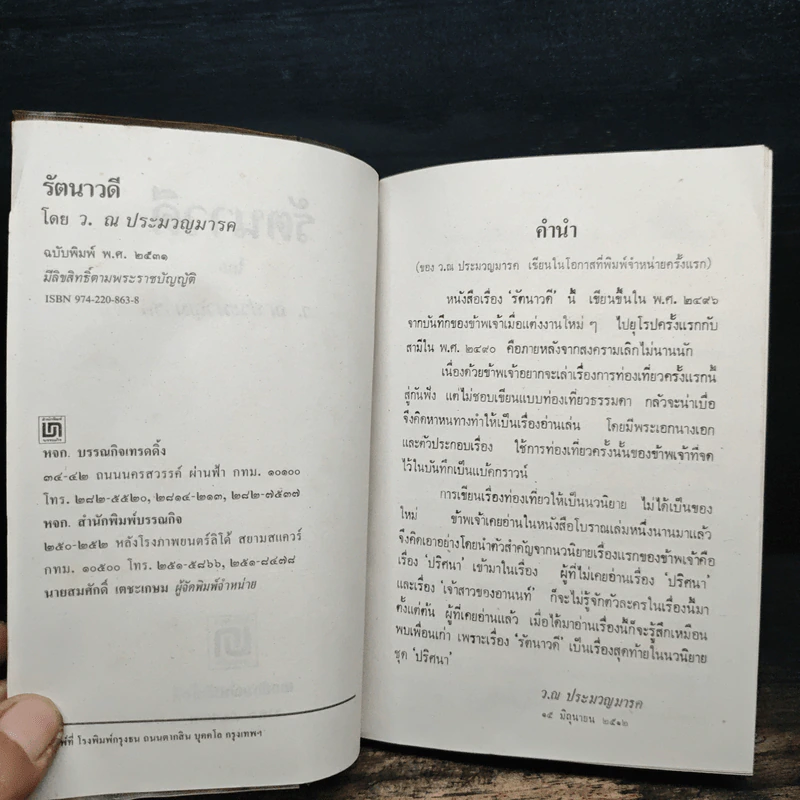 รัตนาวดี
โดย ว. ณ ประมวญมารค
ฉบับพิมพ์ พ.ศ. ๒๕๓๑
มีลิขสิทธิ์ตามพระราชบัญญัติ
ISBN 974-220-863-8
หจก. บรรณกิจเทรดดิ้ง
๓๔-๔๒ ถนนนครสวรรค์ ผ่านฟ้า กทม. ๑๐๑๐๐
โทร. ๒๘๒-๕๕๒๐, ๒๘๑๔-๒๑๓, ๒๘๒-๗๕๓๗
หจก. สำนักพิมพ์บรรณกิจ
๒๕๐-๒๕๒ หลังโรงภาพยนตร์ลิโด้ สยามสแควร์
กทม. ๑๐๕๐๐ โทร. ๒๕๑-๕๘๖๖, ๒๕๑-๘๔๗๘
นายสมศักดิ์ เตชะเกษม ผู้จัดพิมพ์จำหน่าย
ที่ โรงพิมพ์กรุงธน ถนนตากสิน บุคคโล กรุงเทพฯ
คำนำ
(ของ ว.ณ ประมวญมารค เขียนในโอกาสที่พิมพ์จำหน่ายครั้งแรก)
หนังสือเรื่อง 'รัตนาวดี' นี้ เขียนขึ้นใน พ.ศ. ๒๔๙๖
จากบันทึกของข้าพเจ้าเมื่อแต่งงานใหม่ ๆ ไปยุโรปครั้งแรกกับ
สามีใน พ.ศ. ๒๔๙๐ คือภายหลังจากสงครามเลิกไม่นานนัก
เนื่องด้วยข้าพเจ้าอยากจะเล่าเรื่องการท่องเที่ยวครั้งแรกนี้
สู่กันฟัง แต่ไม่ชอบเขียนแบบท่องเที่ยวธรรมดา กลัวจะน่าเบื่อ
จึงคิดหาหนทางทำให้เป็นเรื่องอ่านเล่น โดยมีพระเอกนางเอก
และตัวประกอบเรื่อง ใช้การท่องเที่ยวครั้งนั้นของข้าพเจ้าที่จด
ไว้ในบันทึกเป็นแบ้คกราวน์
การเขียนเรื่องท่องเที่ยวให้เป็นนวนิยาย ไม่ได้เป็นของ
ใหม่ ข้าพเจ้าเคยอ่านในหนังสือโบราณเล่มหนึ่งนานมาแล้ว
จึงคิดเอาอย่างโดยนำตัวสำคัญจากนวนิยายเรื่องแรกของข้าพเจ้าคือ
เรื่อง 'ปริศนา' เข้ามาในเรื่อง ผู้ที่ไม่เคยอ่านเรื่อง 'ปริศนา'
และเรื่อง 'เจ้าสาวของอานนท์' ก็จะไม่รู้จักตัวละครในเรื่องนี้มา
ตั้งแต่ต้น ผู้ที่เคยอ่านแล้ว เมื่อได้มาอ่านเรื่องนี้ก็จะรู้สึกเหมือน
พบเพื่อนเก่า เพราะเรื่อง 'รัตนาวดี' เป็นเรื่องสุดท้ายในนวนิยาย
ชุด 'ปริศนา'
ว.ณ ประมวญมารค
๑๕ มิถุนายน ๒๕๑๒